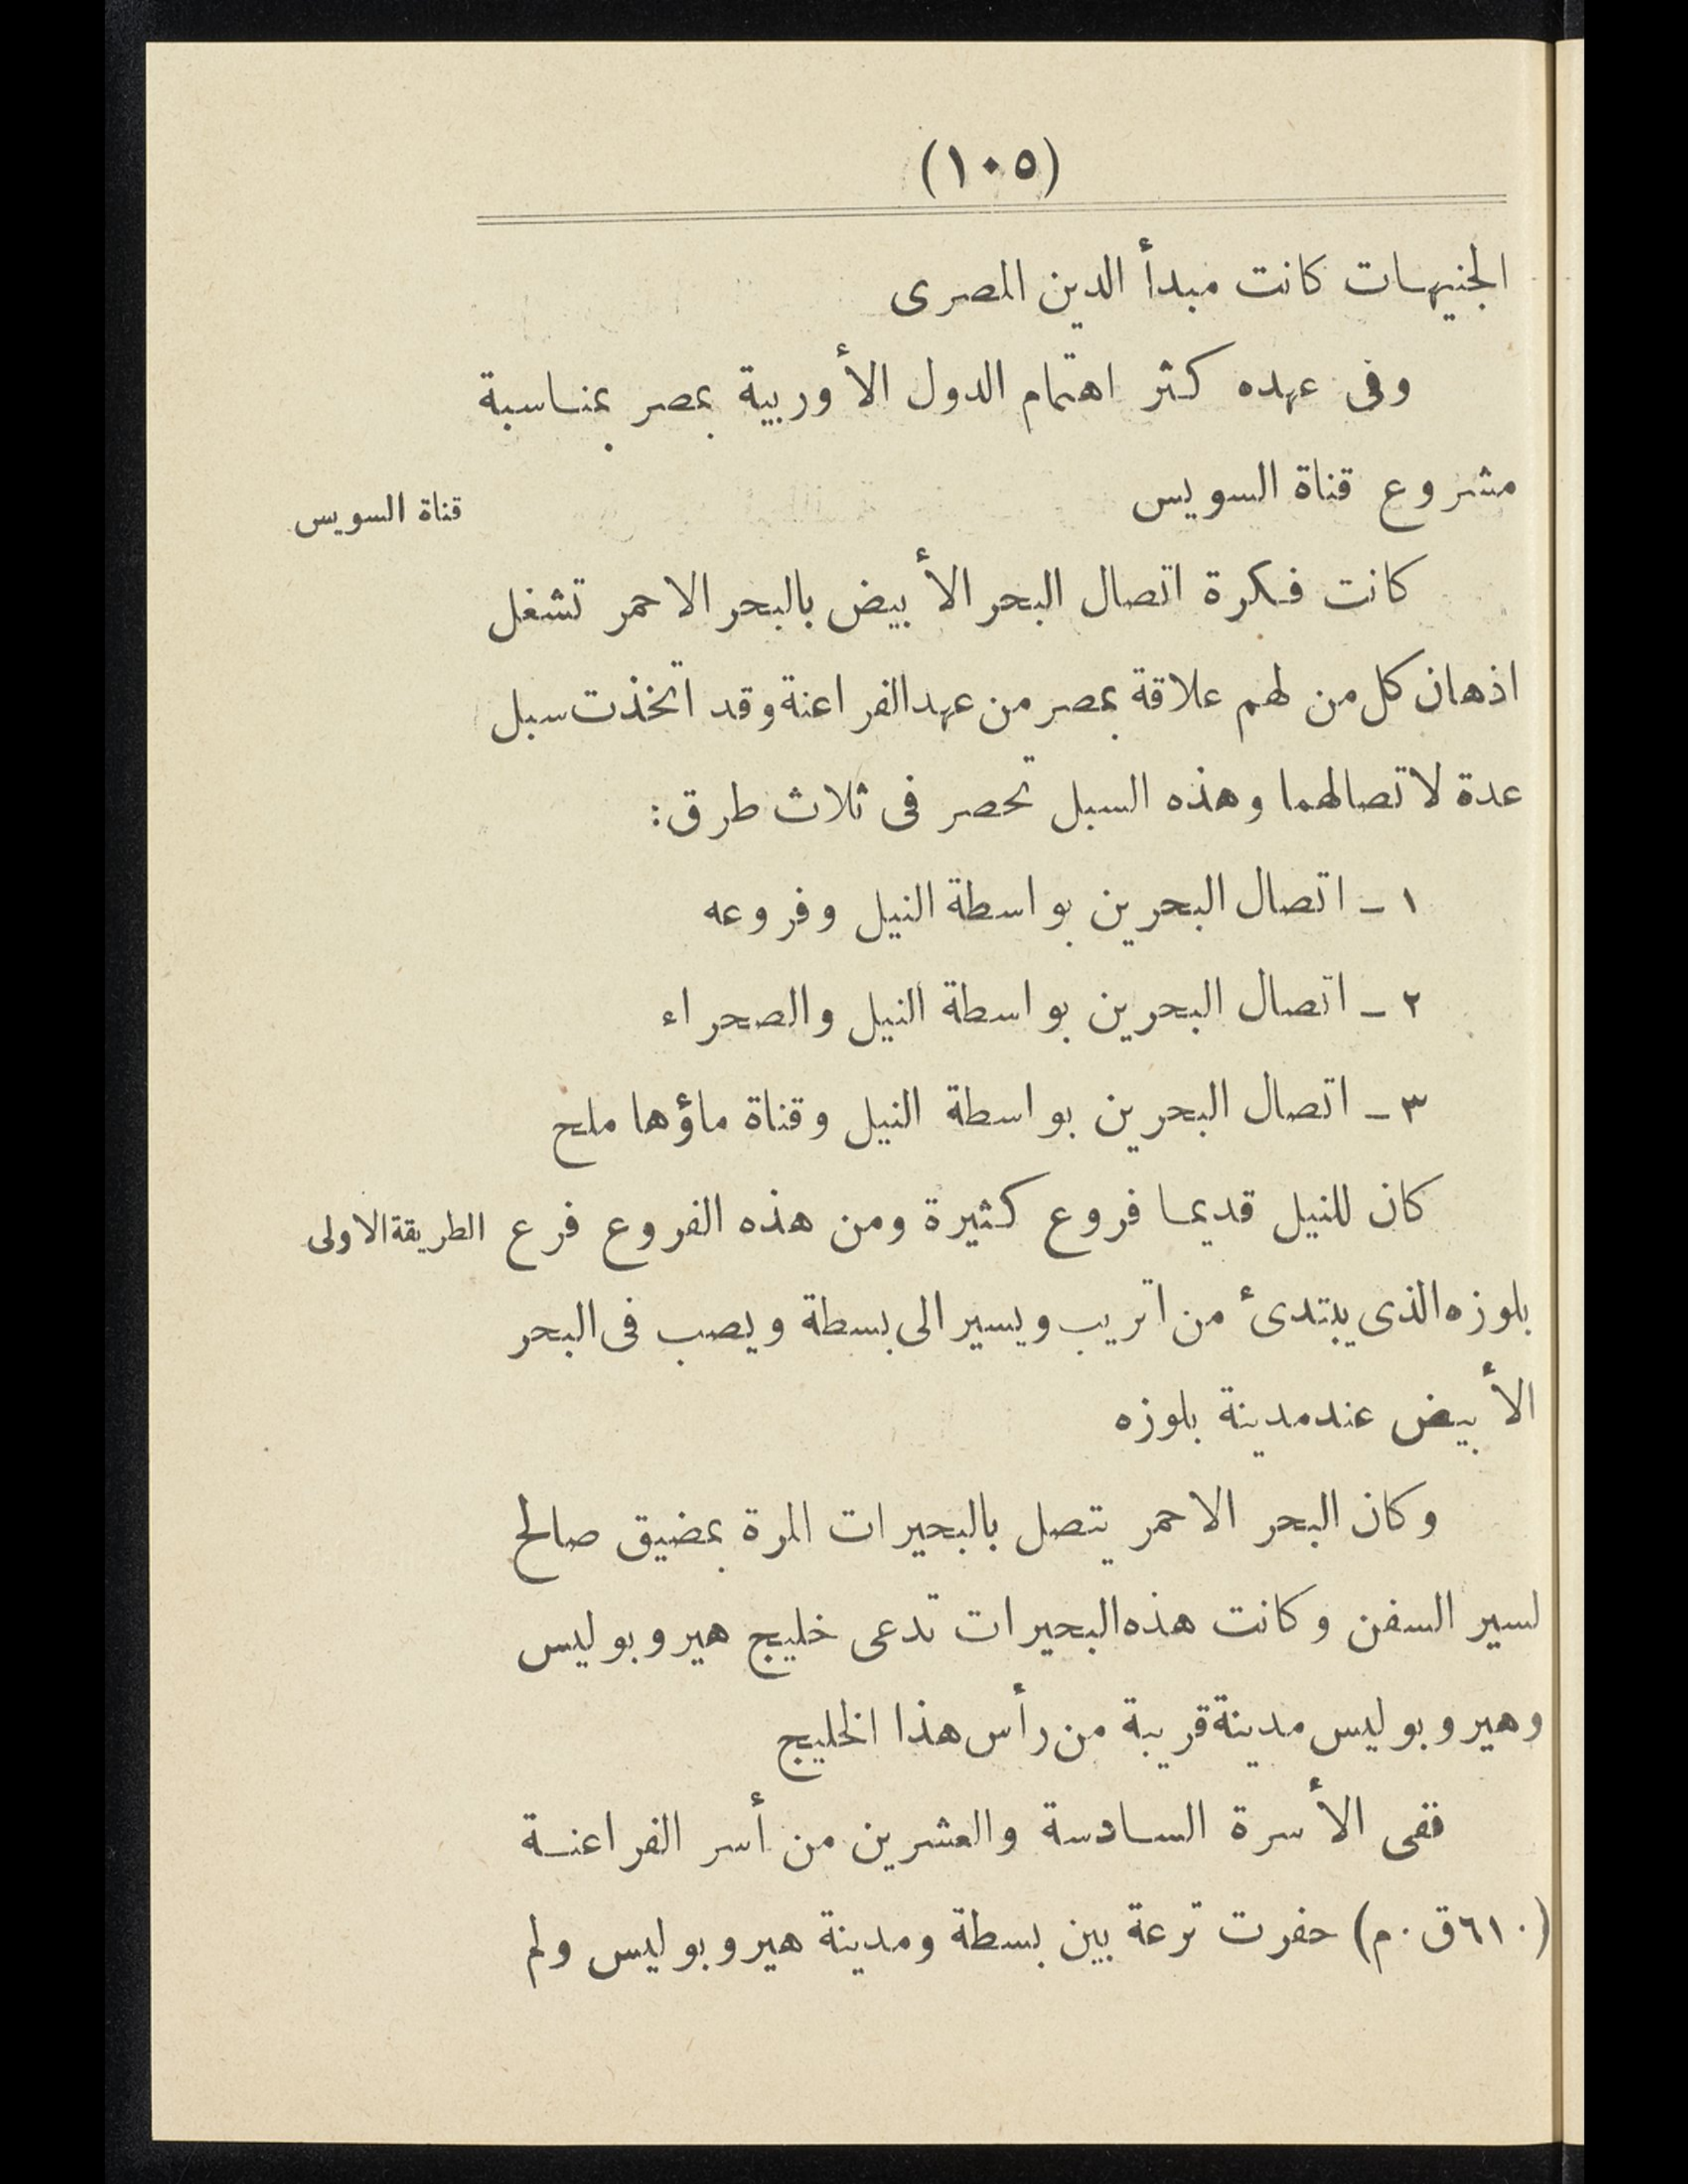 (١٠٥)
الجنيهات كانت مبدأ الدين المصرى
وفى عهده كثر اهتمام الدول الأوربية بمصر بمناسبة
مشروع قناة السويس
قناة السويس
كانت فكرة اتصال البحر الأبيض بالبحر الاحمر تشغل
اذهان كل من لهم علاقة بمصر من عهد الفراعنة وقد اتخذت سبل
عدة لاتصالهما وهذه السبل تحصر فى ثلاث طرق:
١ ـ اتصال البحرين بواسطة النيل وفروعه
٢ ـ اتصال البحرين بواسطة النيل والصحراء
٣ ـ اتصال البحرين بواسطة النيل وقناة ماؤها ملح
كان للنيل قديما فروع كثيرة ومن هذه الفروع فرع
الطريقة الاولى
بلوزه الذى يبتدئ من اتريب ويسير الى بسطة ويصب فى البحر
الأبيض عند مدينة بلوزه
وكان البحر الاحمر يتصل بالبحيرات المرة بمضيق صالح
لسير السفن وكانت هذه البحيرات تدعى خليج هيروبوليس
وهيروبوليس مدينة قريبة من رأس هذا الخليج
ففى الأسرة السادسة والعشرين من أسر الفراعنة
(٦١٠ ق.م) حفرت ترعة بين بسطة ومدينة هيروبوليس ولم